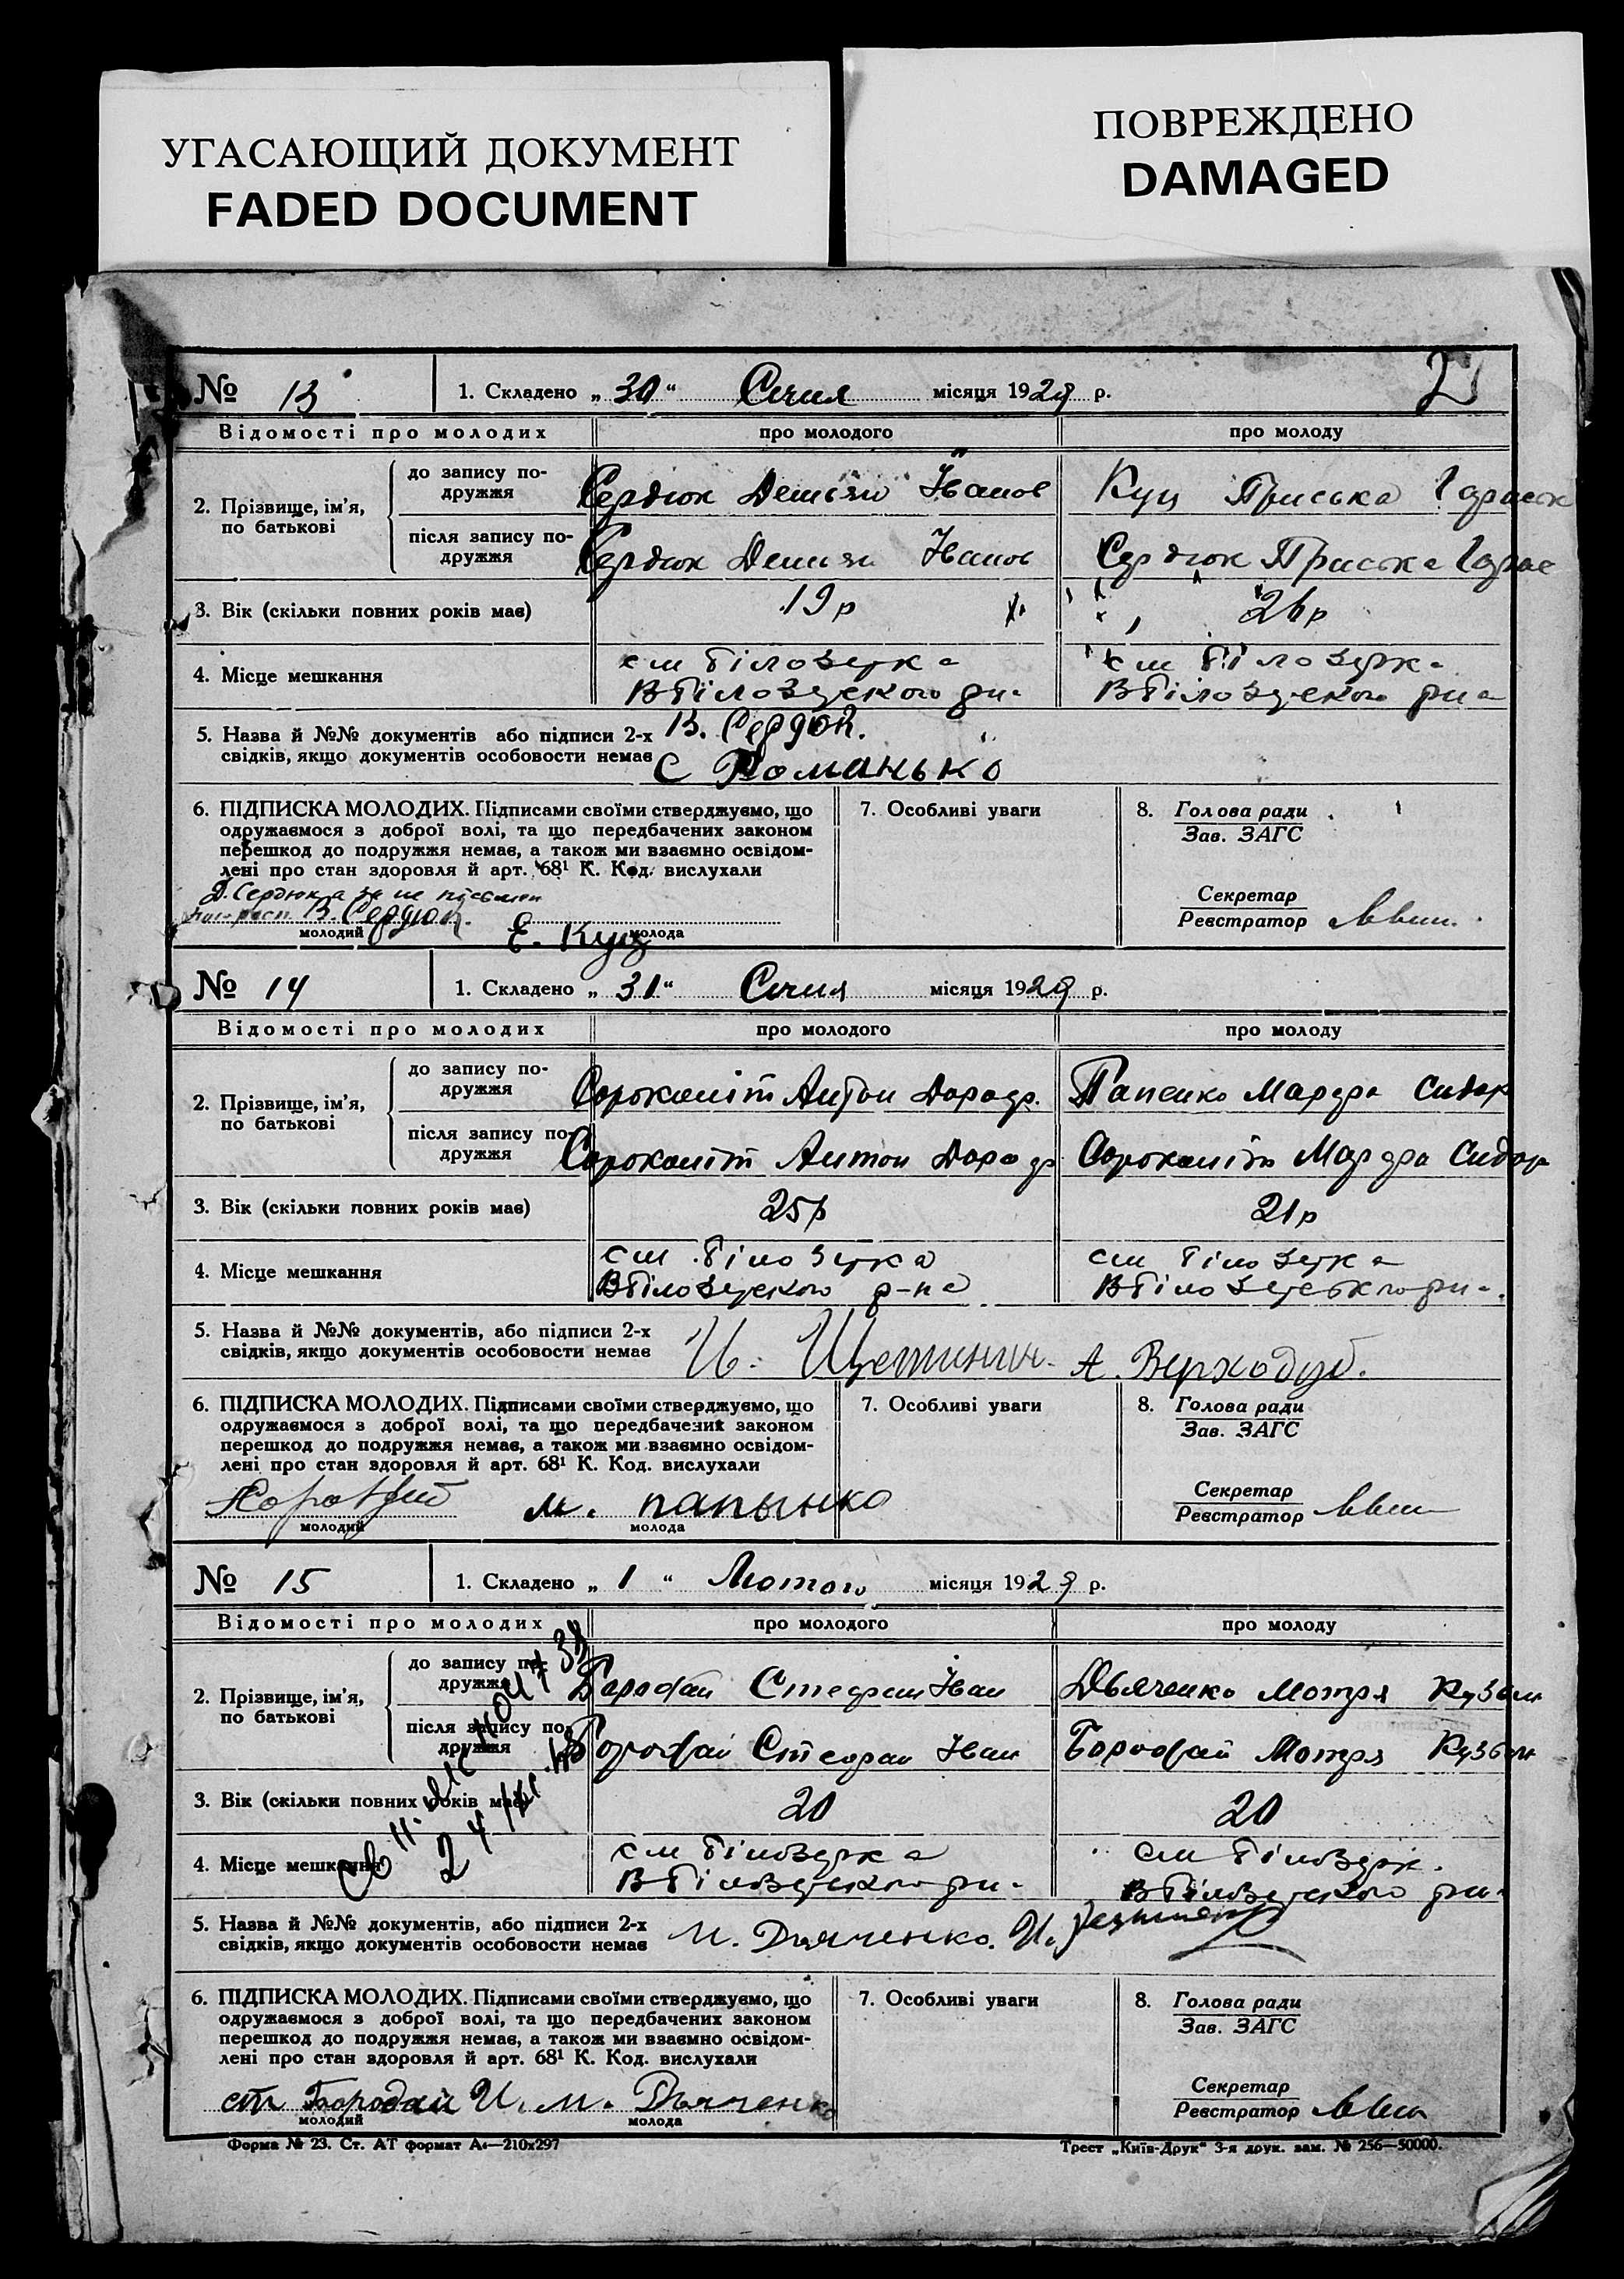 УГАСАЮЩИЙ ДОКУМЕНТ
FADED DOCUMENT
ПОВРЕЖДЕНО
DAMAGED
№ 13 1. Складено „ 30 “ Січня місяця 1929 р.
Відомості про молодих про молодого про молоду
2. Прізвище, ім'я, по батькові
до запису подружжя Сердюк Демьян Іванов Куц Приська
після запису подружжя Сердюк Демьян Іванов Сердюк Приська
3. Вік (скільки повних років має) 19 р 26 р
4. Місце мешкання см Білозерка см Білозерка
В Білозерского р-на В Білозерского р-на
5. Назва й №№ документів або підписи 2-х В. Сердюк.
свідків, якщо документів особовости немає С Романько
6. ПІДПИСКА МОЛОДИХ. Підписами своїми стверджуємо, що 7. Особливі уваги 8. Голова ради
одружаємося з доброї волі, та що передбачених законом Зав. ЗАГС
перешкод до подружжя немає, а також ми взаємно освідом-
лені про стан здоровля й арт. 68¹ К. Код. вислухали
Д. Сердюк а за не Секретар
В. Сердюк. Е. Куц Реєстратор
молодий молода
№ 14 1. Складено „ 31 “ Січня місяця 1929 р.
Відомості про молодих про молодого про молоду
2. Прізвище, ім'я, по батькові
до запису подружжя Антон Папенко Сидор
після запису подружжя Антон Сидор
3. Вік (скільки повних років має) 25 р 21 р
4. Місце мешкання см Білозерка см Білозерка
В Білозерского р-на В Білозерського р-на
5. Назва й №№ документів, або підписи 2-х
свідків, якщо документів особовости немає И. Щетинин. А. Верходуб.
6. ПІДПИСКА МОЛОДИХ. Підписами своїми стверджуємо, що 7. Особливі уваги 8. Голова ради
одружаємося з доброї волі, та що передбачених законом Зав. ЗАГС
перешкод до подружжя немає, а також ми взаємно освідом-
лені про стан здоровля й арт. 68¹ К. Код. вислухали
м. папынко Секретар
молодий молода Реєстратор
№ 15 1. Складено „ 1 “ Лютого місяця 1929 р.
Відомості про молодих про молодого про молоду
2. Прізвище, ім'я, по батькові
до запису подружжя Бородай Стефан Іван Дьяченко Мотря Кузьм
після запису подружжя Бородай Стефан Іван Бородай Мотря Кузьм
3. Вік (скільки повних років має) 20 20
4. Місце мешкання см Білозерка см Білозерк.
В Білозерского р-на В Білозерского р-на
5. Назва й №№ документів, або підписи 2-х
свідків, якщо документів особовости немає И. Дьяченко. И.
6. ПІДПИСКА МОЛОДИХ. Підписами своїми стверджуємо, що 7. Особливі уваги 8. Голова ради
одружаємося з доброї волі, та що передбачених законом Зав. ЗАГС
перешкод до подружжя немає, а також ми взаємно освідом-
лені про стан здоровля й арт. 68¹ К. Код. вислухали
ст Бородай И. м. Дьяченко Секретар
молодий молода Реєстратор
Форма № 23. Ст. АТ формат А₄—210х297 Трест „Київ-Друк“ 3-я друк. зам. № 256—50000.